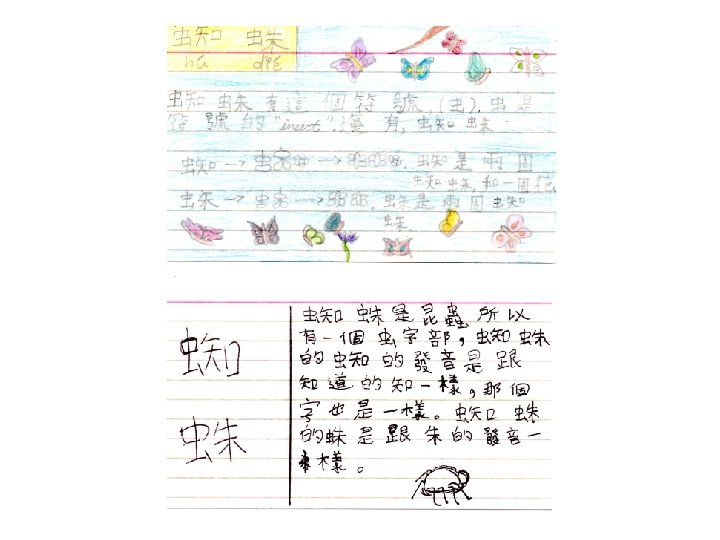 蜘 蛛
hú dié
蜘蛛有這個符號,(虫).虫是
符號的"insert".還有,蜘蛛
蜘→→,蜘是兩固
蜘蛛,和一固
蛛→→,蛛是兩固蜘
蛛.
蜘
蛛
蜘蛛是昆蟲所以
有一個虫字部，蜘蛛
的蜘的發音是跟
知道的知一樣，那個
字也是一樣。蜘蛛
的蛛是跟朱的發音一
樣。